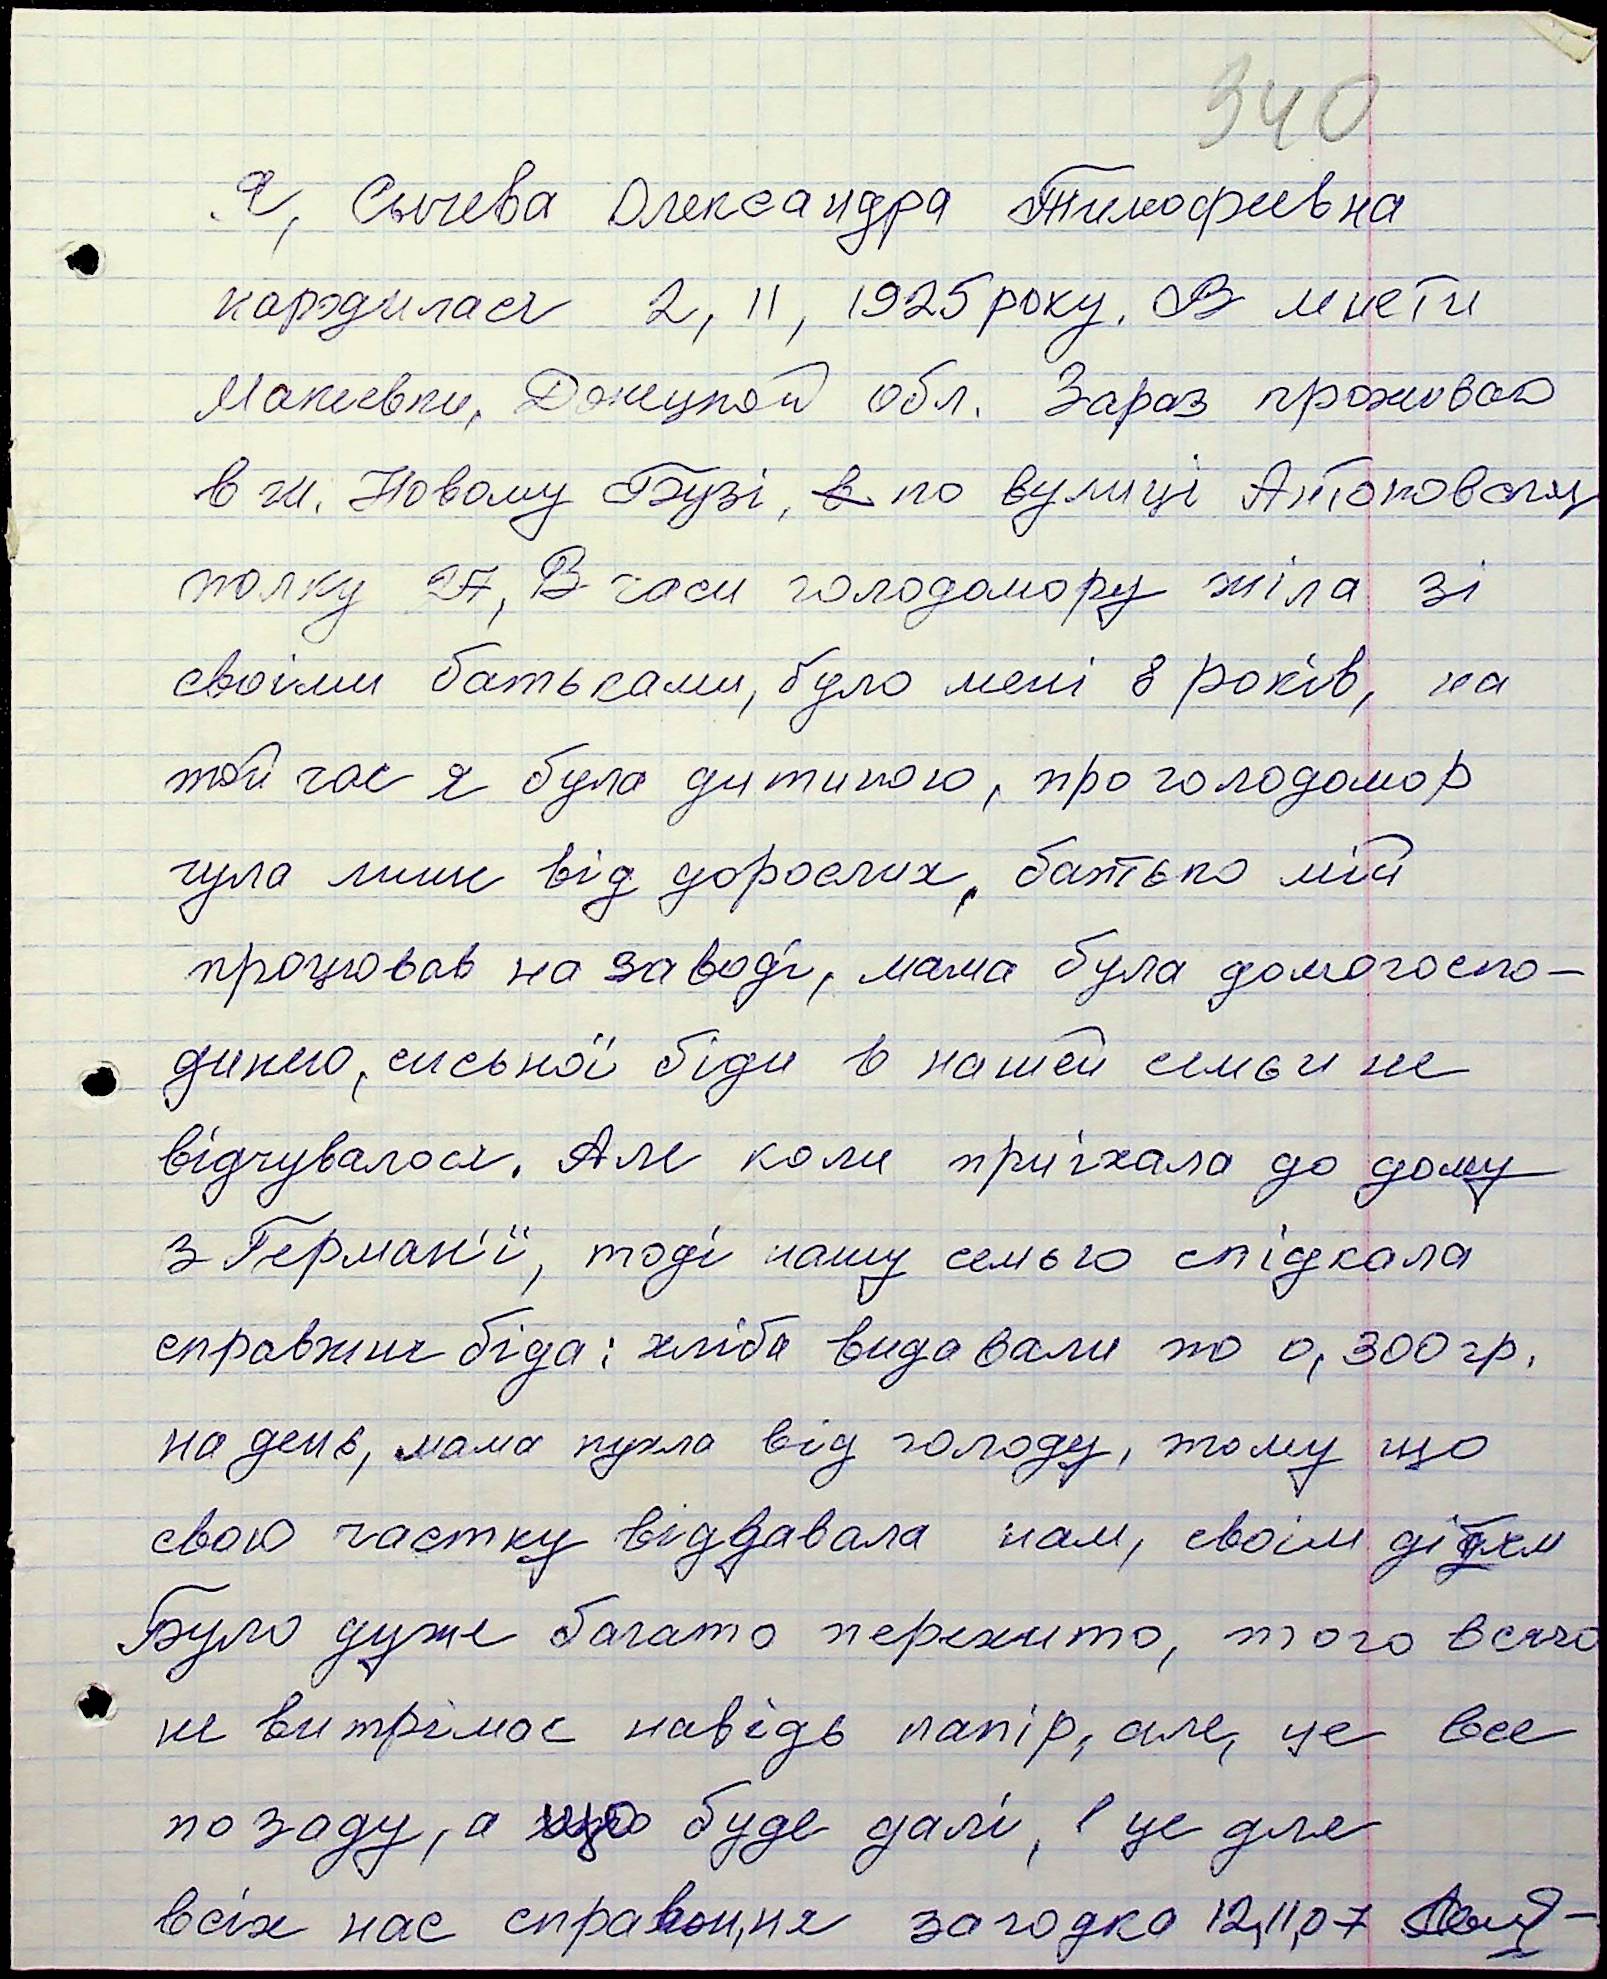 340
Я, Сычева Олександра Тимофеевна
народилася 2, 11, 1925 року. В мисти
Макиевки, Донецкой обл. Зараз проживаю
в м. Новому Бузі, в по вулиці
полку 27, В часи голодомору жіла зі
своіми батьками, було мені 8 років, на
той час я була дитиною, про голодомор
чула лише від дорослих, батько мій
працював на заводі, мама була домогоспо-
динею, сильної біди в нашей семьи не
відчувалося. Але коли приїхала до дому
з Германії, тоді нашу семью спідкала
справжня біда: хліба видавали по 0,300 гр.
на день, мама пухла від голоду, тому що
свою частку віддавала нам, своім дітям
Було дуже багато пережито, того всячо
не витрімає навідь папір, але, це все
позаду, а що буде далі, це для
всіх нас справжня загодка 12,11,07